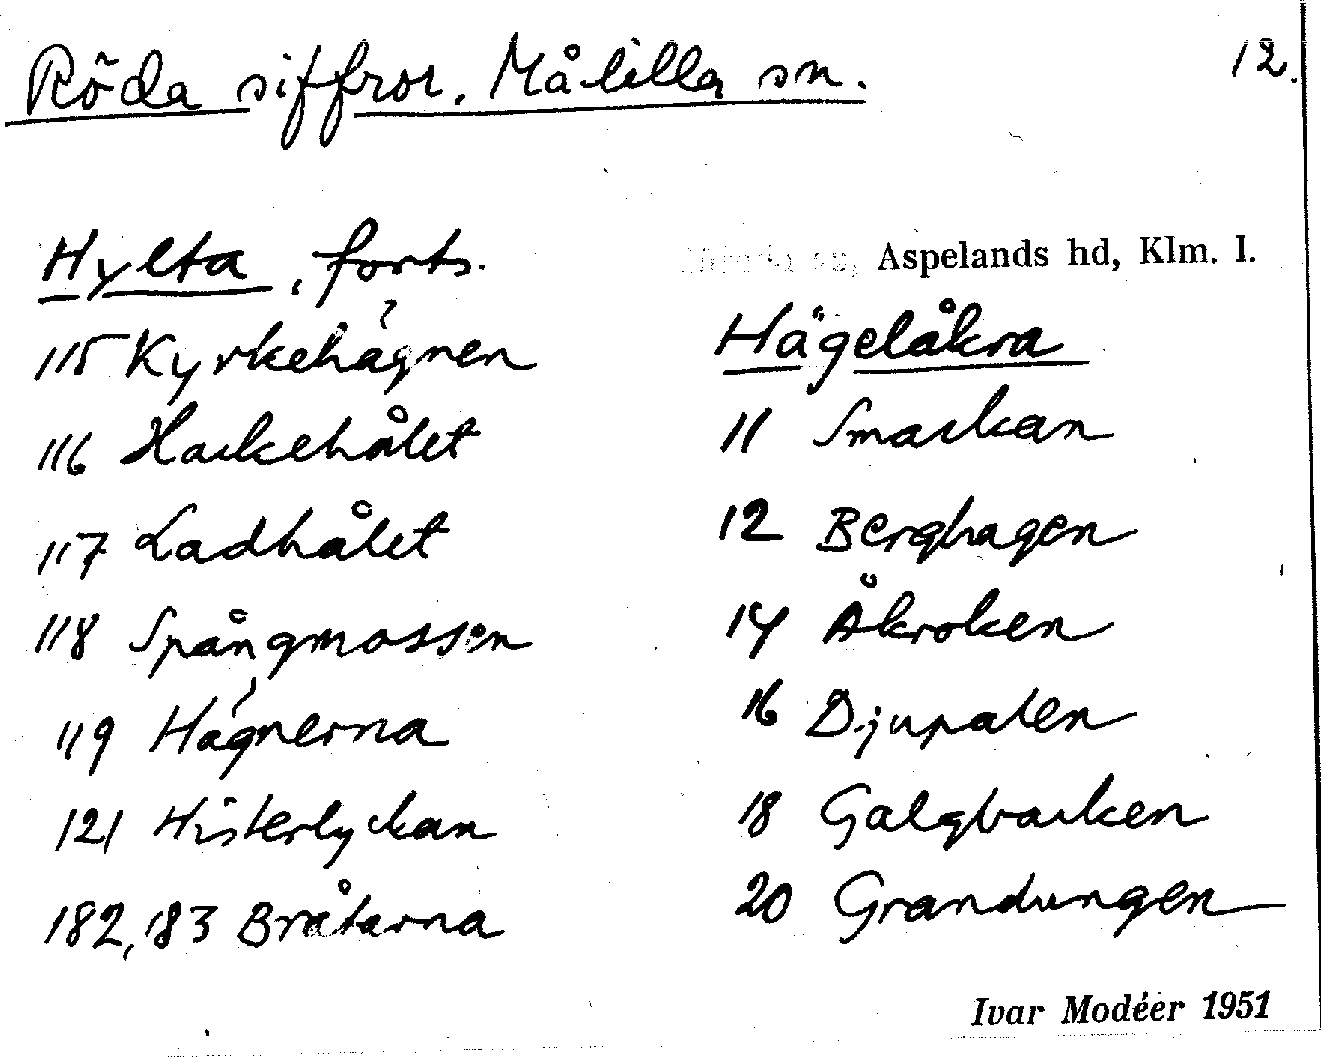 Röda siffror. Målilla sn.
12.
Aspelands hd, Klm. l.
Hylta, forts.
115 Kyrkehägnen
116 Hackehålet
117 Ladhålet
118 Spångmossen
119 Hägnerna
121 Histerlyckan
182, 183 Bråtarna
Hägelåkra
11 Smackan
12 Berghagen
14 Åkroken
16 Djupalen
18 Galgbacken
20 Grandungen
Ivar Modéer 1951